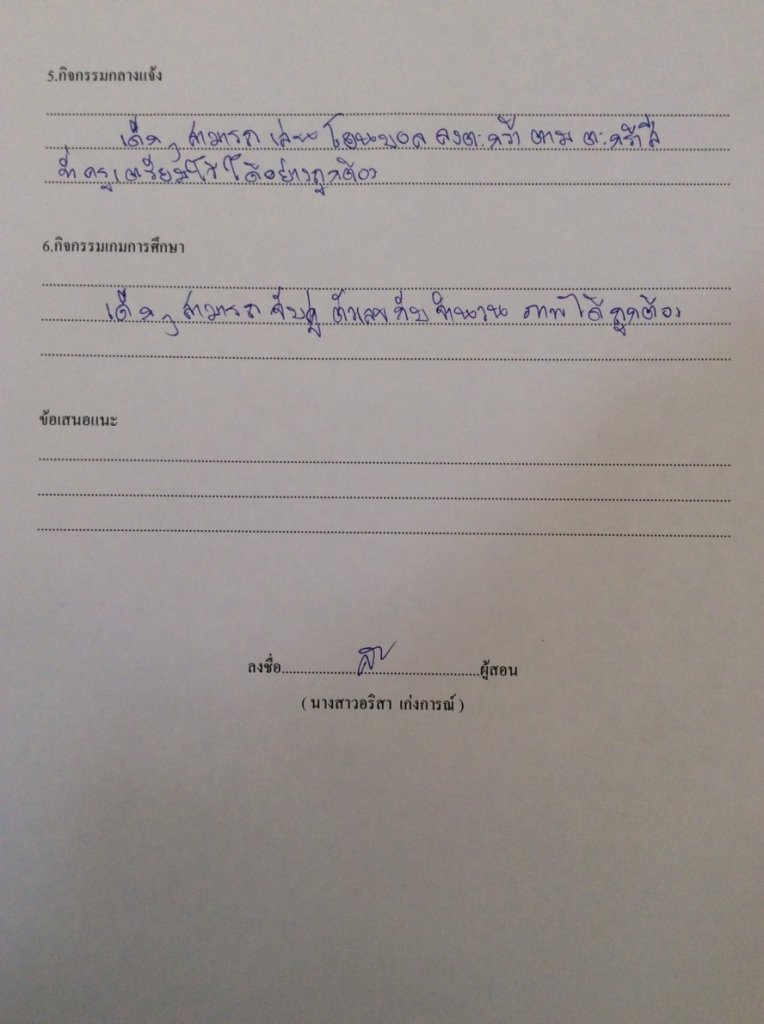 5.กิจกรรมกลางแจ้ง
เด็กๆ สามารถ เล่น โยนบอล ลงตะกร้า ตาม ตะกร้าสี
ที่ ครูเตรียมไว้ ได้อย่างถูกต้อง
6.กิจกรรมเกมการศึกษา
เด็กๆ สามารถ จับคู่ ตัวเลข กับ จำนวน ภาพ ได้ ถูกต้อง
ข้อเสนอแนะ
ลงชื่อ......................................................ผู้สอน
( นางสาวอริสา เก่งการณ์ )